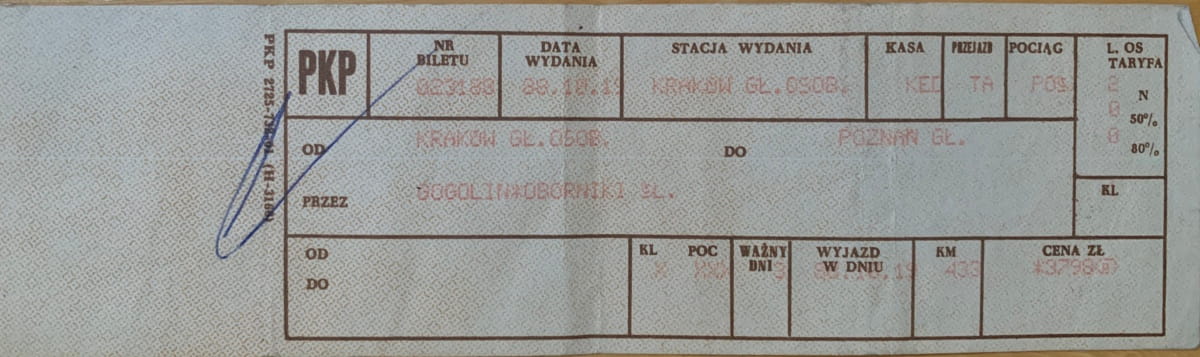 PKP 2725-730-01 (H-3160)
PKP
NR BILETU
DATA WYDANIA
STACJA WYDANIA
KASA
PRZEJAZD
POCIĄG
L. OS TARYFA
023188 88.10.19 KRAKÓW GŁ.OSOB. KED TA POS. 2
N 0
50% 0
80%
OD KRAKÓW GŁ.OSOB. DO POZNAŃ GŁ.
PRZEZ GOGOLIN*OBORNIKI ŚL.
KL
OD
DO
KL POC
WAŻNY DNI
WYJAZD W DNIU
KM
CENA ZŁ
X XXX 3 88.10.19 433 *3798